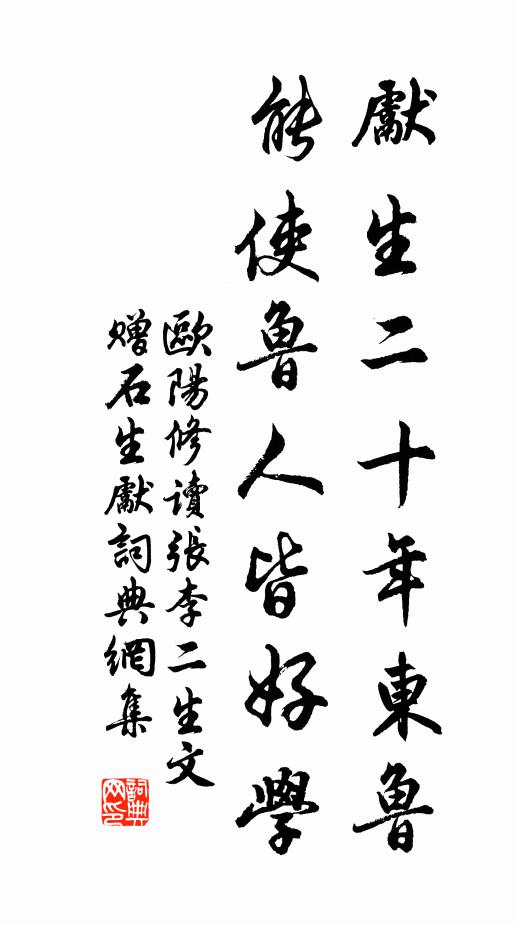 獻生二十年東魯
能使魯人皆好學
歐陽修讀張李二生文
贈石生獻詞典網集
詞典網印